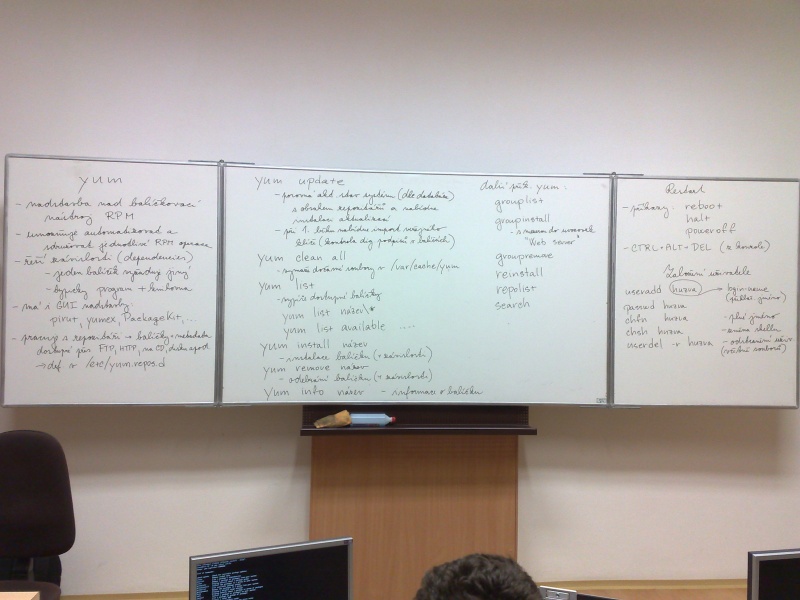 yum
- nadstavba nad balíčkovací
nástroj RPM
- umožňuje automatizovat a
sdružovat jednotlivé RPM operace
- řeší závislosti (dependencies)
- jeden balíček vyžaduje jiný
- typicky program + knihovna
- má i GUI nadstavby:
pirut, yumex, PackageKit,...
- pracuje s repositáři → balíčky + metadata
dostupné přes FTP, HTTP, na CD, disku apod
→ def v /etc/yum.repos.d
yum update
- porovná akt. stav systému (dle databáze)
s obsahem repositářů a nabídne
instalaci aktualizací
- při 1. běhu nabídne import veřejného
klíče (kontrola dig. podpisů v balíčcích)
yum clean all
- vymaže dočasné soubory v /var/cache/yum
yum list
- vypíše dostupné balíčky
yum list název*
yum list available ....
yum install název
- instalace balíčku (+ závislosti)
yum remove název
- odebrání balíčku (+ závislosti)
yum info název - informace o balíčku
další přík. yum:
grouplist
groupinstall
"Web server"
groupremove
reinstall
repolist
search
Restart
- příkazy: reboot
halt
poweroff
- CTRL+ALT+DEL (z konzole)
Založení uživatele
useradd huzva → loginname
(příhlaš. jméno)
passwd huzva
chfn huzva - plné jméno
chsh huzva - změna shellu
userdel -r huzva - odstranění uživ.
(včetně souborů)